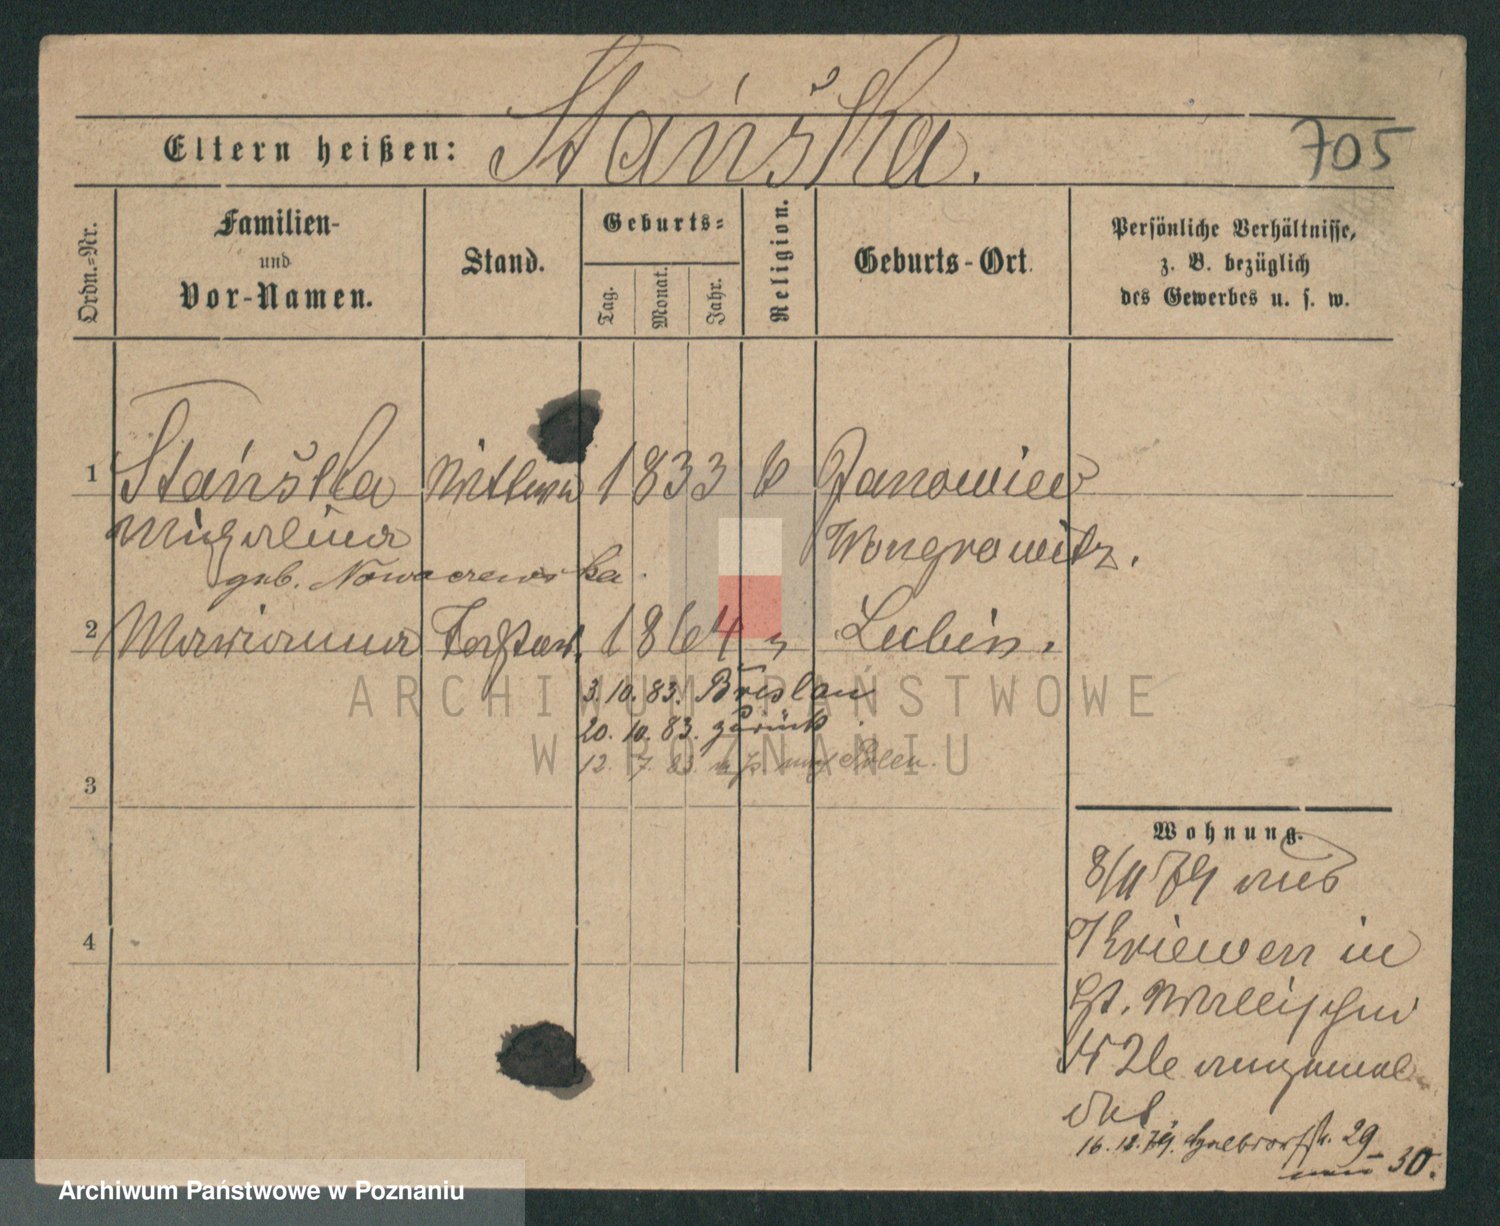 Eltern heißen: Stańska.
705
Ordn.-Nr.
Familien-
und
Vor-Namen.
Stand.
Geburts-
Tag.
Monat.
Jahr.
Religion.
Geburts-Ort.
Persönliche Verhältnisse,
z. B. bezüglich
des Gewerbes u. s. w.
1 Stańska Wittwe 1833 k Janowiec
Michalina Wongrowitz.
geb. Nowaczewska.
2 Marianna Tochter. 1864 " Lubin.
3. 10. 83. Breslau
20. 10. 83. zurück
12. 7. 83 nach Polen.
3
4
Wohnung.
8/11 79 aus
Kriewen in
St. Wallischei
angemel-
det.
16. 12. 79. 29
30.
ARCHIWUM PAŃSTWOWE
W POZNANIU
Archiwum Państwowe w Poznaniu